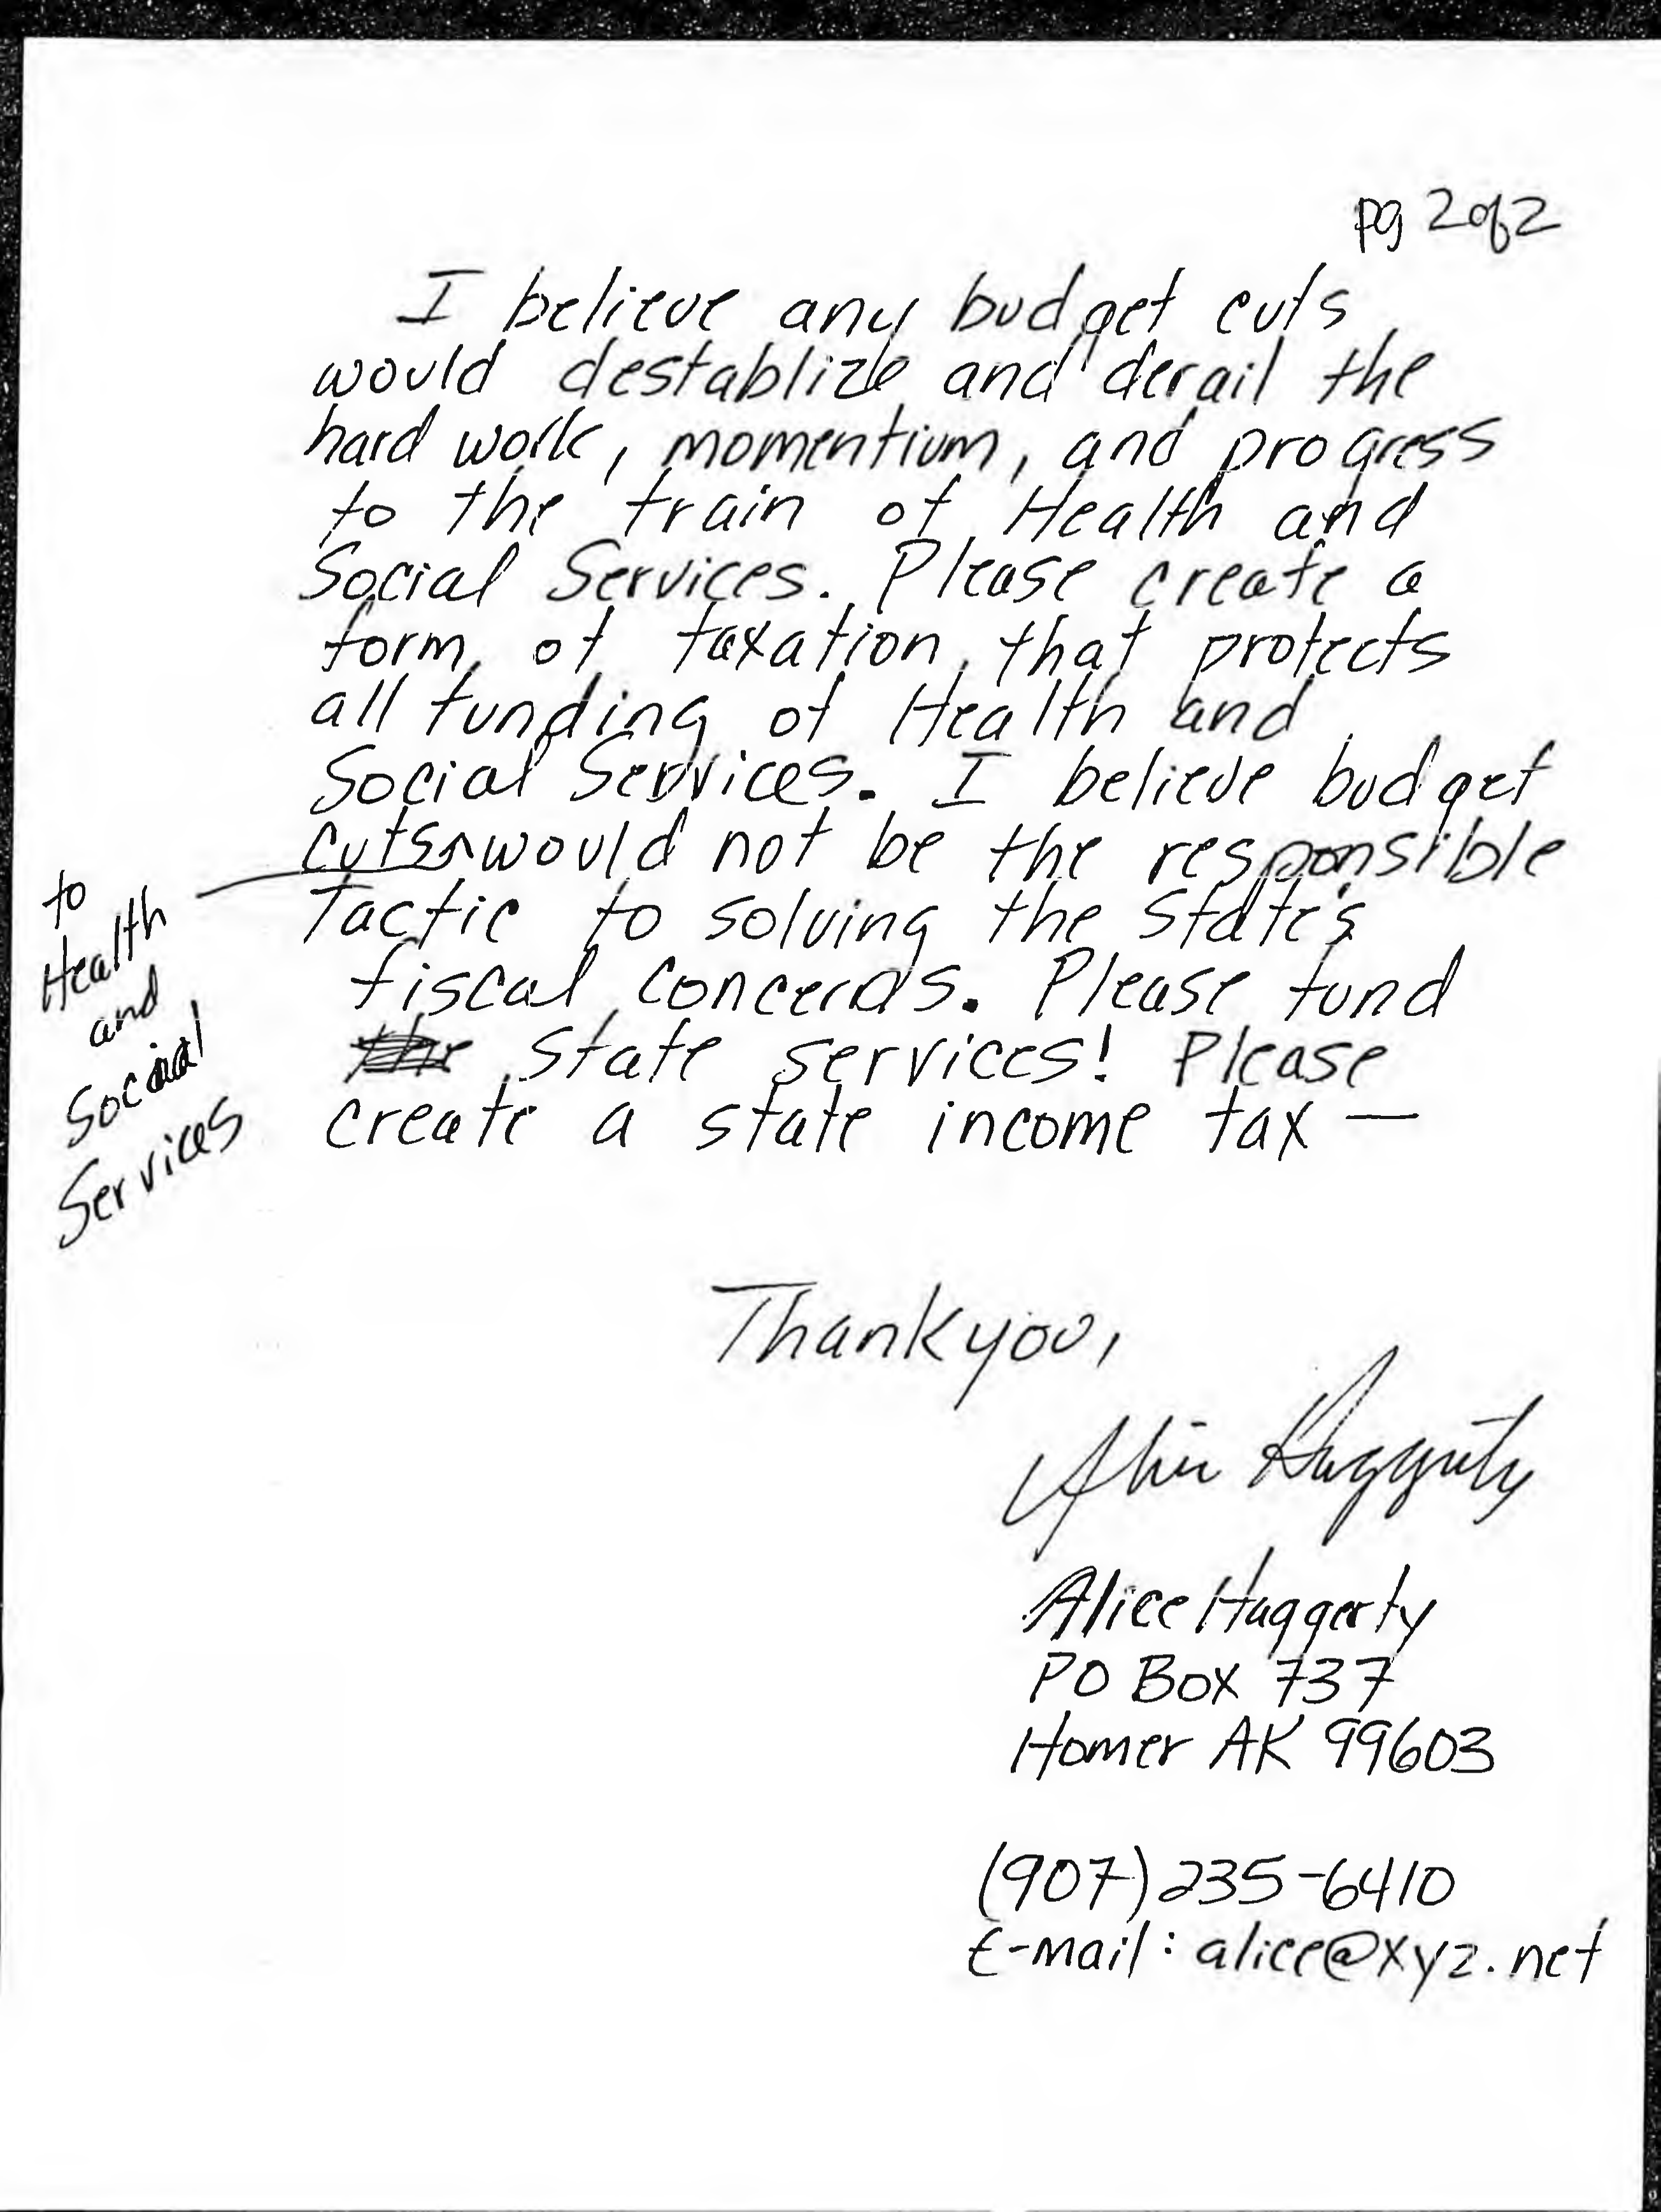 pg 2 of 2
I believe any budget cuts
would destablize and derail the
hard work, momentium, and progress
to the train of Health and
Social Services. Please create a
form of taxation, that protects
all funding of Health and
Social Services. I believe budget
cuts ^ would not be the responsible
to
Health
and
Social
Services
Tactic to solving the State's
fiscal concerns. Please fund
the State services! Please
create a state income tax —
Thank you,
Alice Haggerty
Alice Haggerty
PO Box 737
Homer AK 99603
(907) 235-6410
E-mail: alice@xyz.net